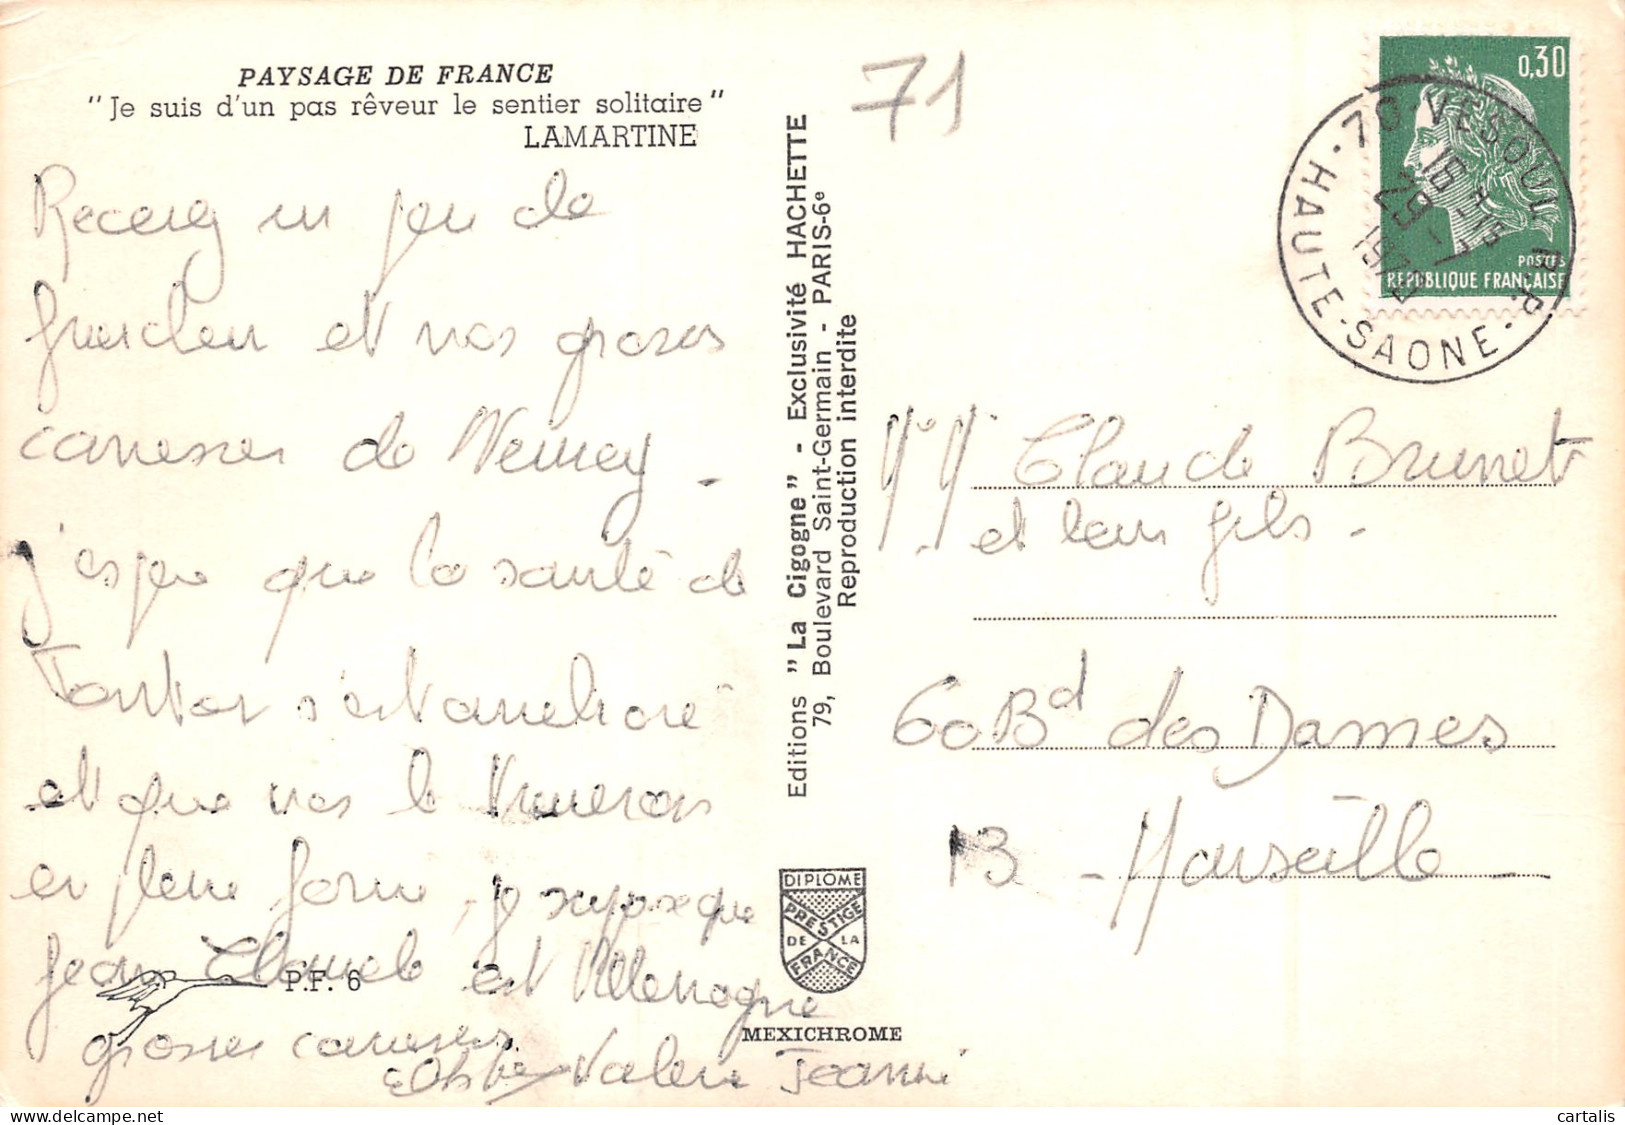 PAYSAGE DE FRANCE
"Je suis d'un pas rêveur le sentier solitaire"
LAMARTINE
71
0,30
POSTES
REPUBLIQUE FRANÇAISE
70 - VESOUL R.P.
HAUTE-SAONE
29 -7
un peu de
et nos grosses
caresses de
j'espère que la santé de
Tonton s'est améliorée
et que vous le
en pleine forme, je suppose que
Jean Claude est
grosses caresses.
Valérie Jeanne
P.F. 6
Editions "La Cigogne" - Exclusivité HACHETTE
79, Boulevard Saint-Germain - PARIS-6e
Reproduction interdite
DIPLOME
PRESTIGE
DE LA
FRANCE
MEXICHROME
Claude Brunet
et leur fils -
60 Bd des Dames
13 - Marseille -
cartalis